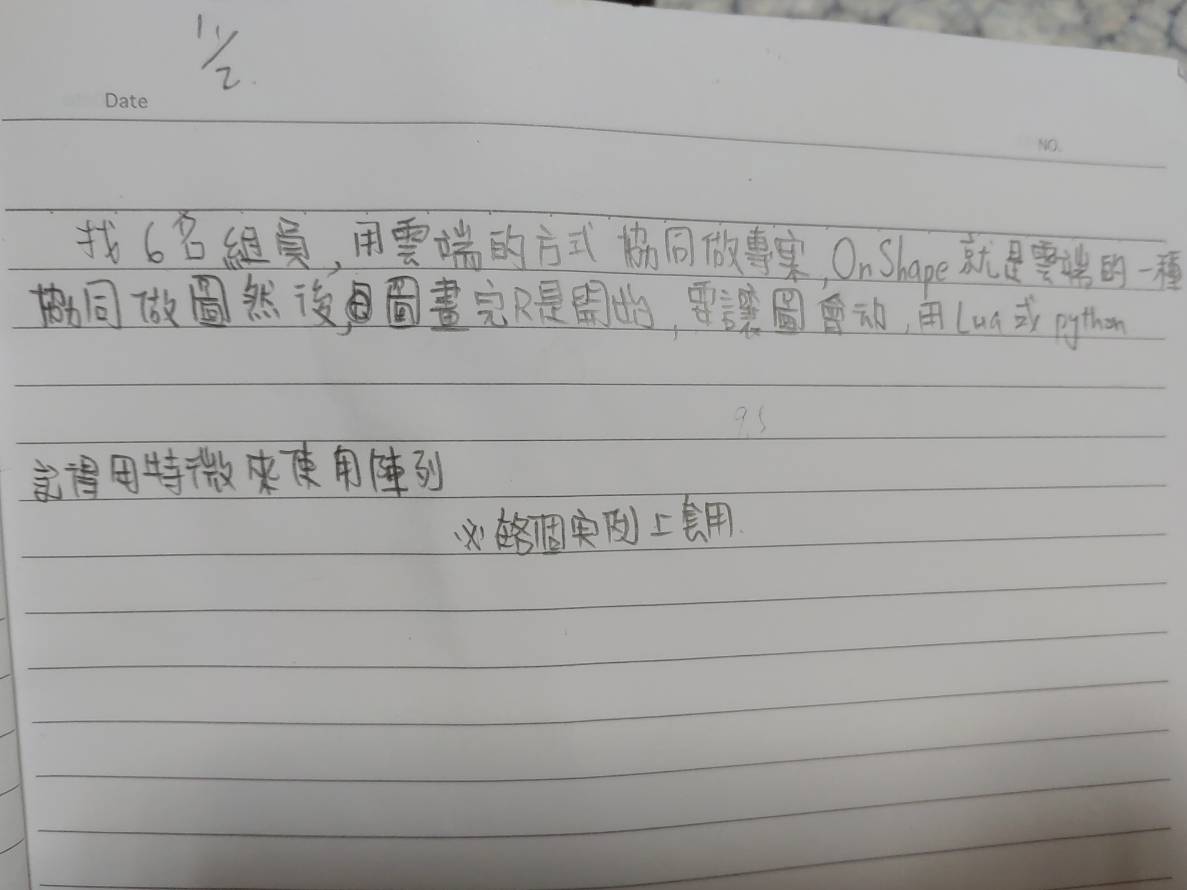 11/2
Date
NO.
找6名組員,用雲端的方式協同做專案,OnShape就是雲端的一種
協同做圖然後,圖畫完只是開始,要讓圖會动,用Lua或python
95
記得用特徵來使用陣列
必 略個实例上套用.